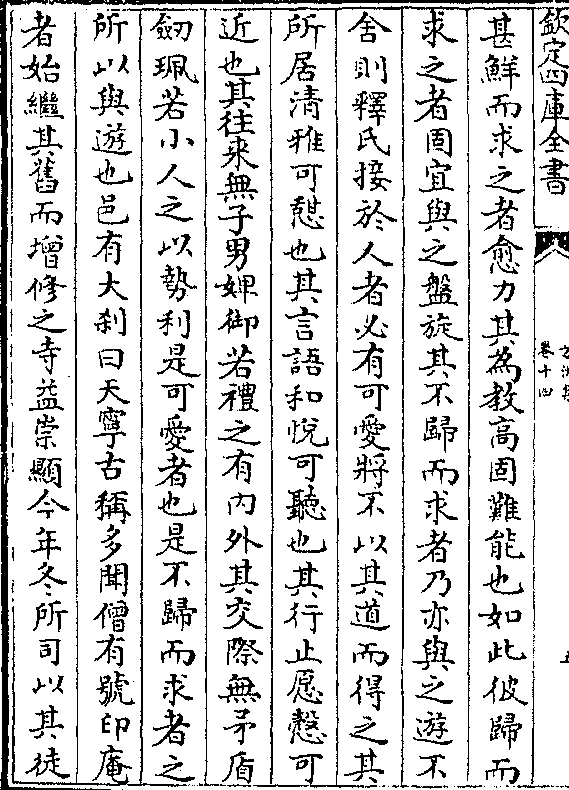 欽定四庫全書
卷十四
甚鮮而求之者愈力其為教高固難能也如此彼歸而
求之者固宜與之盤旋其不歸而求者乃亦與之遊不
舍則釋氏接於人者必有可愛將不以其道而得之其
所居清雅可憇也其言語和悅可聽也其行止愿慤可
近也其往来無子男婢御若禮之有内外其交際無矛盾
劒珮若小人之以勢利是可愛者也是不歸而求者之
所以與遊也邑有大刹曰天寧古稱多聞僧有號印庵
者始繼其舊而增修之寺益崇顯今年冬所司以其徒